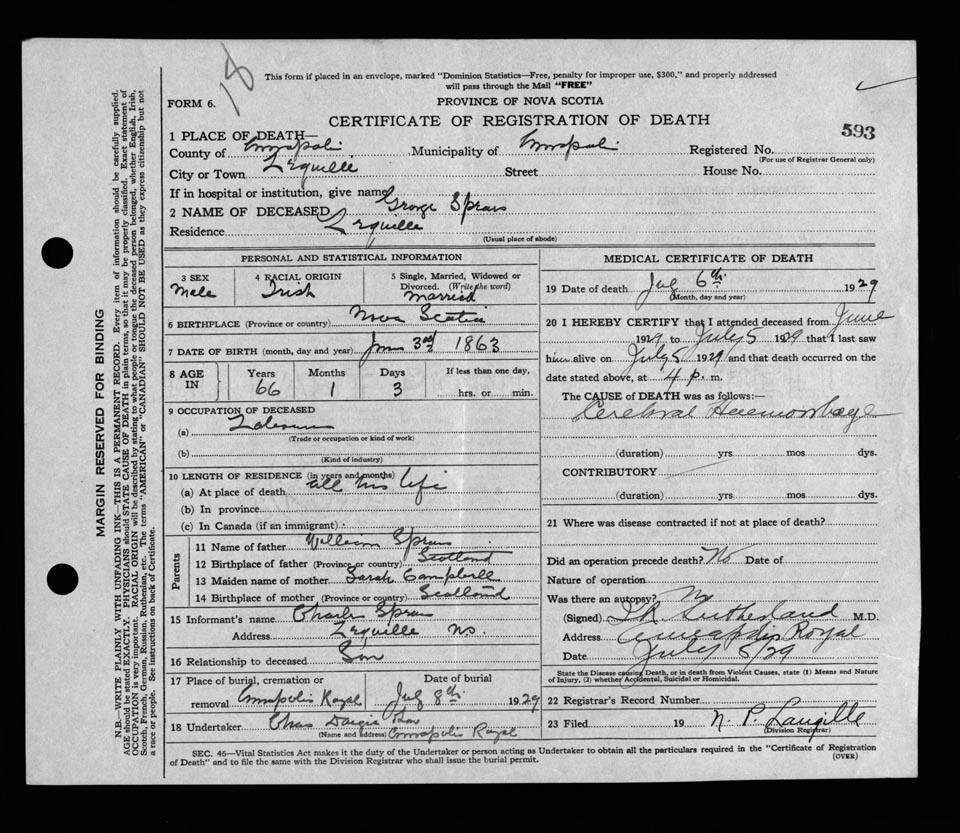 18
This form if placed in an envelope, marked "Dominion Statistics—Free, penalty for improper use, $300," and properly addressed
will pass through the Mail "FREE"
FORM 6.
PROVINCE OF NOVA SCOTIA
CERTIFICATE OF REGISTRATION OF DEATH
593
1 PLACE OF DEATH—
County of Annapolis Municipality of Annapolis Registered No.
(For use of Registrar General only)
City or Town Lequille Street House No.
If in hospital or institution, give name
2 NAME OF DECEASED George
Residence Lequille
(Usual place of abode)
PERSONAL AND STATISTICAL INFORMATION
3 SEX 4 RACIAL ORIGIN 5 Single, Married, Widowed or
Divorced. (Write the word)
Male Irish Married
6 BIRTHPLACE (Province or country) Nova Scotia
7 DATE OF BIRTH (month, day and year) June 3rd 1863
8 AGE IN Years Months Days If less than one day,
66 1 3 hrs. or min.
9 OCCUPATION OF DECEASED
(a)
(Trade or occupation or kind of work)
(b)
(Kind of industry)
10 LENGTH OF RESIDENCE (in years and months)
(a) At place of death all his life
(b) In province
(c) In Canada (if an immigrant)
Parents
11 Name of father William
12 Birthplace of father (Province or country) Scotland
13 Maiden name of mother Sarah Campbell
14 Birthplace of mother (Province or country) Scotland
15 Informant's name Charles
Address Lequille NS.
16 Relationship to deceased Son
17 Place of burial, cremation or Date of burial
removal Annapolis Royal July 8th 1929
18 Undertaker Chas
(Name and address) Annapolis Royal
MEDICAL CERTIFICATE OF DEATH
19 Date of death July 6th 1929
(Month, day and year)
20 I HEREBY CERTIFY that I attended deceased from June
1929 to July 5 1929 that I last saw
him alive on July 5 1929 and that death occurred on the
date stated above, at 4 p. m.
The CAUSE of DEATH was as follows:—
Cerebral Haemorrhage
(duration) yrs mos dys.
CONTRIBUTORY
(duration) yrs. mos. dys.
21 Where was disease contracted if not at place of death?
Did an operation precede death? No Date of
Nature of operation
Was there an autopsy? No
(Signed) Sutherland M.D.
Address Annapolis Royal
Date July 5/29
State the Disease causing Death, or in death from Violent Causes, state (1) Means and Nature
of Injury, (2) whether Accidental, Suicidal or Homicidal.
22 Registrar's Record Number
23 Filed 19 N. P. Langille
(Division Registrar)
SEC. 46—Vital Statistics Act makes it the duty of the Undertaker or person acting as Undertaker to obtain all the particulars required in the "Certificate of Registration
of Death" and to file the same with the Division Registrar who shall issue the burial permit.
(OVER)
MARGIN RESERVED FOR BINDING
N.B.—WRITE PLAINLY WITH UNFADING INK—THIS IS A PERMANENT RECORD. Every item of information should be carefully supplied.
AGE should be stated EXACTLY. PHYSICIANS should STATE CAUSE OF DEATH in plain terms, so that it may be properly classified. Exact statement of
OCCUPATION is very important. RACIAL ORIGIN will be described by stating to what people or tongue the deceased person belonged, whether English, Irish,
Scotch, French, German, Russian, Ruthenian, etc. The terms "AMERICAN" or "CANADIAN" SHOULD NOT BE USED as they express citizenship but not
a race or people. See instructions on back of Certificate.